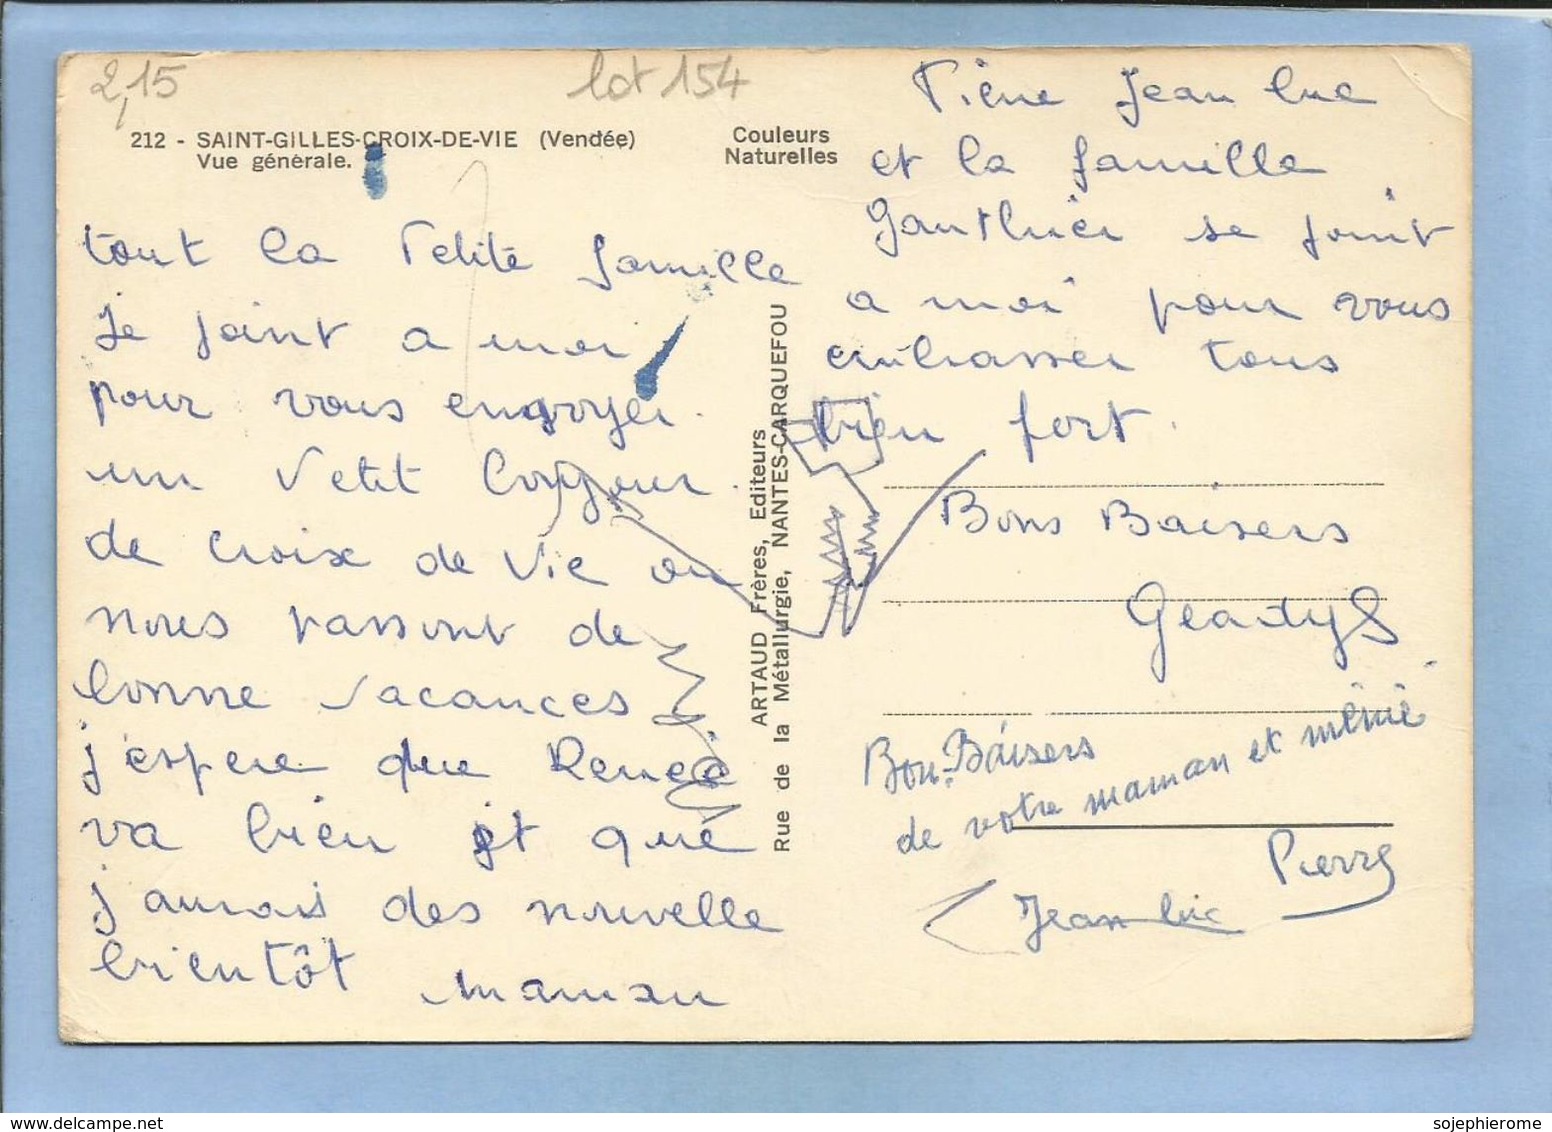 2,15
lot 154
212 - SAINT-GILLES-CROIX-DE-VIE (Vendée)
Vue générale.
Couleurs
Naturelles
tout la Petite famille
se joint a moi
pour vous envoyer
un Petit bonjour
de Croix de Vie ou
nous passont de
bonne vacances
j'espere que Renée
va bien et que
j'aurais des nouvelle
bientôt maman
ARTAUD Frères, Editeurs
Rue de la Métallurgie, NANTES-CARQUEFOU
Pierre Jean luc
et la famille
Gauthier se joint
a moi pour vous
embrasser tous
bien fort.
Bons Baisers
Gladys
Bon Baisers
de votre maman et mémé
Pierre
Jean luc
sojephierome